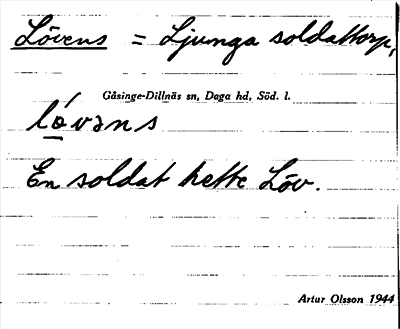 Lövens = Ljunga soldattorp,
Gåsinge-Dillnäs sn, Daga hd, Söd. l.
lǿvəns
En soldat hette Löv.
Artur Olsson 1944